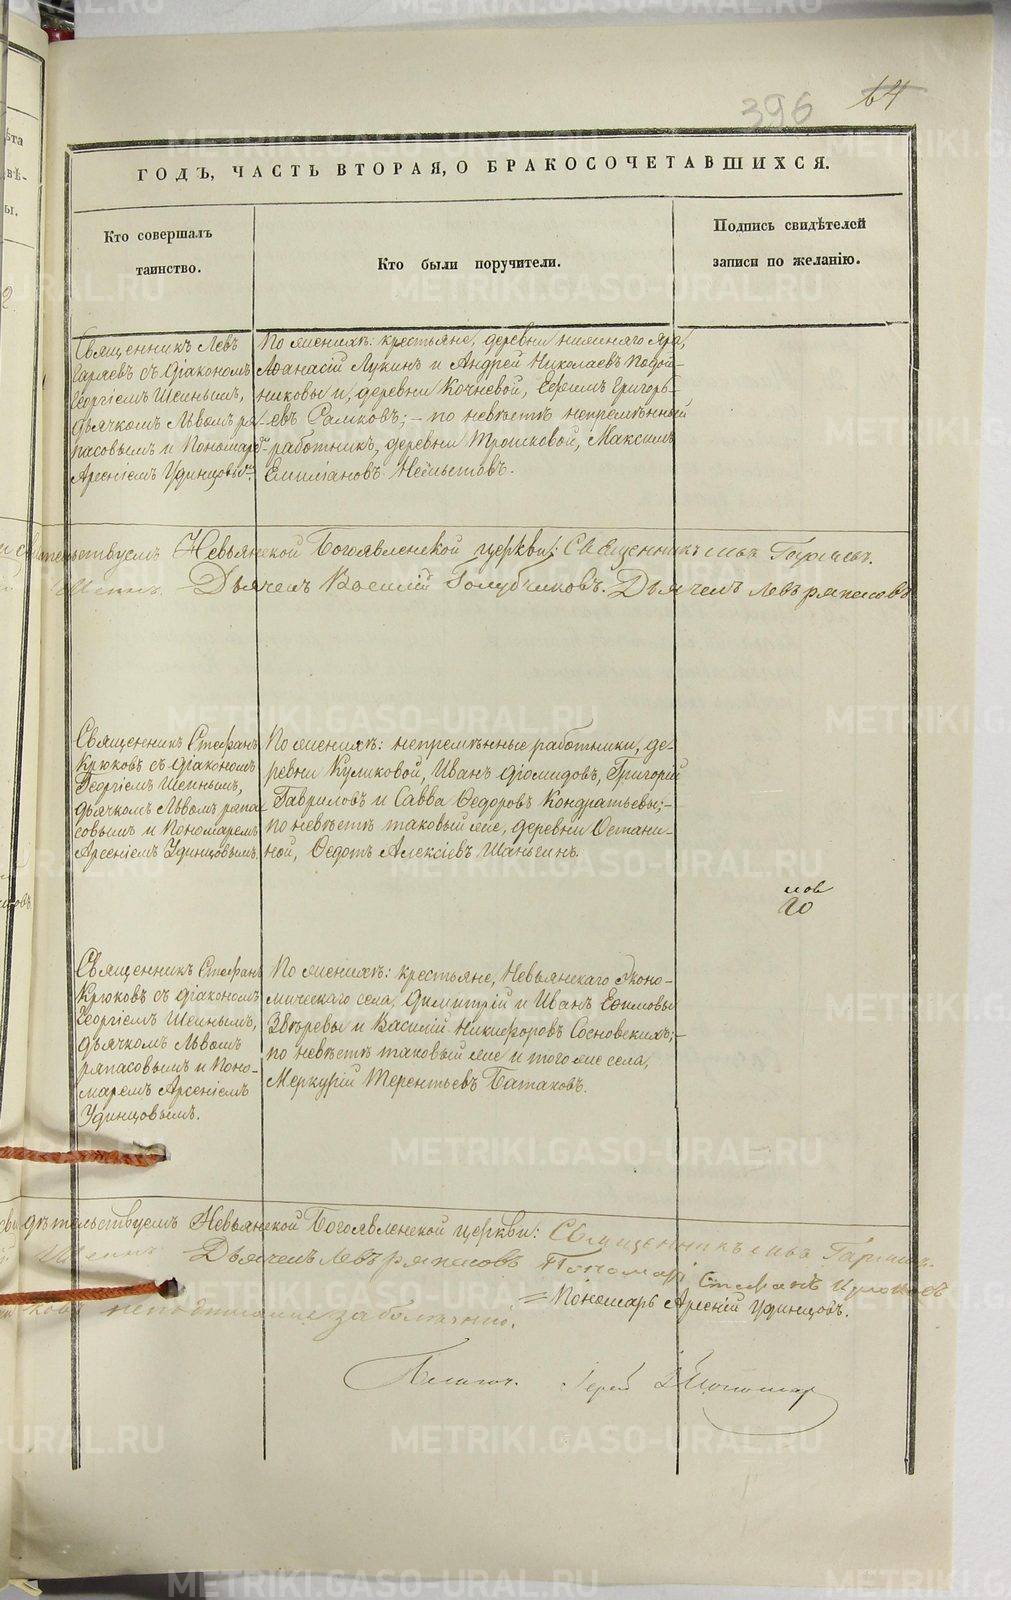 396 64
ГОДЪ, ЧАСТЬ ВТОРАЯ, О БРАКОСОЧЕТАВШИХСЯ.
Кто совершалъ
таинство.
Кто были поручители.
Подпись свидѣтелей
записи по желанію.
Священникъ Левъ
Гаряевъ съ діакономъ
Георгіемъ Шеинымъ,
дьячкомъ Львомъ ря-
пасовымъ и Пономаремъ
Арсеніемъ Удинцовымъ.
По женихѣ: крестьяне, деревни нижняго Яра,
Афанасій Лукинъ и Андрей Николаевъ Подой-
никовы и, деревни Кочневой, Ефимъ Григорь-
евъ Ралковъ; – по невѣстѣ непремѣнный
работникъ, деревни Трошковой, Максимъ
Емиліановъ Неймѣтовъ.
Невьянской Богоявленской церкви: Священникъ Левъ Гаряевъ.
Шеинъ. Дьячекъ Василій Голубчиковъ. Дьячекъ Левъ ряпасовъ
Священникъ Стефанъ
Крюковъ съ діакономъ
Георгіемъ Шеинымъ,
дьячкомъ Львомъ ряпа-
совымъ и Пономаремъ
Арсеніемъ Удинцовымъ.
По женихѣ: непремѣнные работники, де-
ревни Куликовой, Иванъ Діомидовъ, Григорій
Гавриловъ и Савва Ѳедоровъ Кондратьевы; –
по невѣстѣ таковый же, деревни Остани-
ной, Ѳедотъ Алексіевъ Шаньгинъ.
Священникъ Стефанъ
Крюковъ съ діакономъ
Георгіемъ Шеинымъ,
дьячкомъ Львомъ
ряпасовымъ и Поно-
маремъ Арсеніемъ
Удинцовымъ.
По женихѣ: крестьяне, Невьянскаго Эконо-
мическаго села, Димитрій и Иванъ Ефимовы
Звѣревы и Василій Никифоровъ Сосновскихъ; –
по невѣстѣ таковый же и того же села,
Меркурій Терентьевъ Батаковъ.
свидѣтельствуемъ Невьянской Богоявленской церкви: Священникъ Левъ Гаряевъ.
Шеинъ Дьячекъ Левъ ряпасовъ Стефанъ Крюковъ
= Пономарь Арсеній Удинцовъ.
METRIKI.GASO-URAL.RU